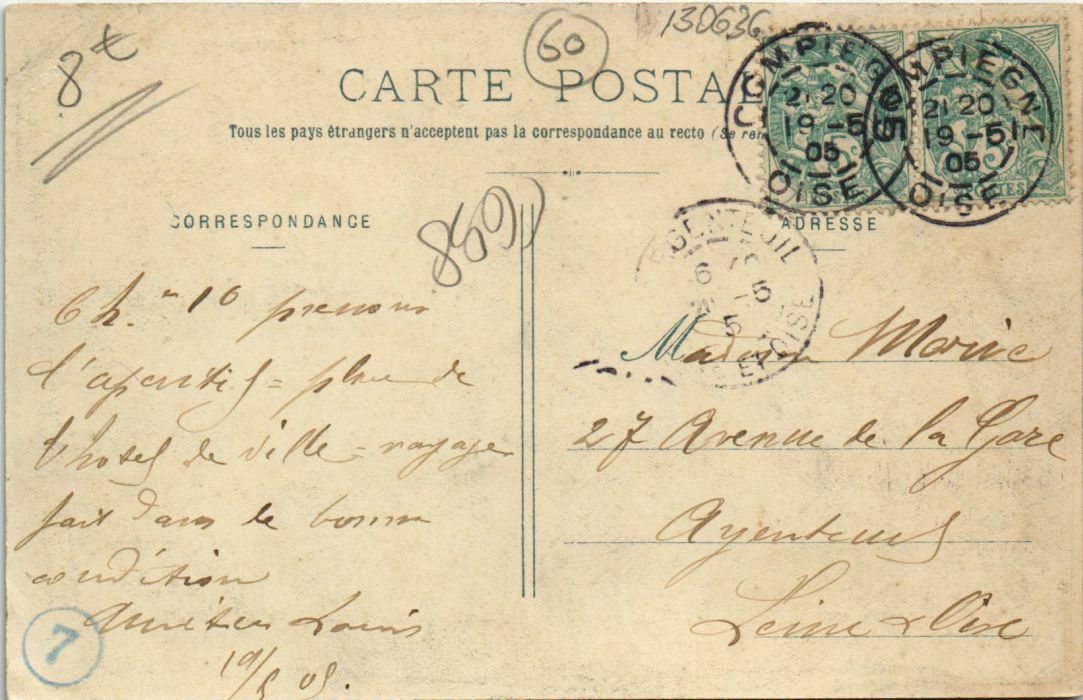 8€
60
130636
CARTE POSTALE
Tous les pays étrangers n'acceptent pas la correspondance au recto (Se ren
COMPIEGNE
21 20
19 -5
05
OISE
COMPIEGNE
21 20
19 -5
05
OISE
CORRESPONDANCE
859
ADRESSE
RGENTEUIL
6
5
ET OISE
6h. 10 prenons
l'aperitif = place de
l'hotel de ville = voyage
fait dans le bonne
condition
Louis
19/5 05.
7
Madame Morin
27 Avenue de la Gare
Argenteuil
Seine & Oise